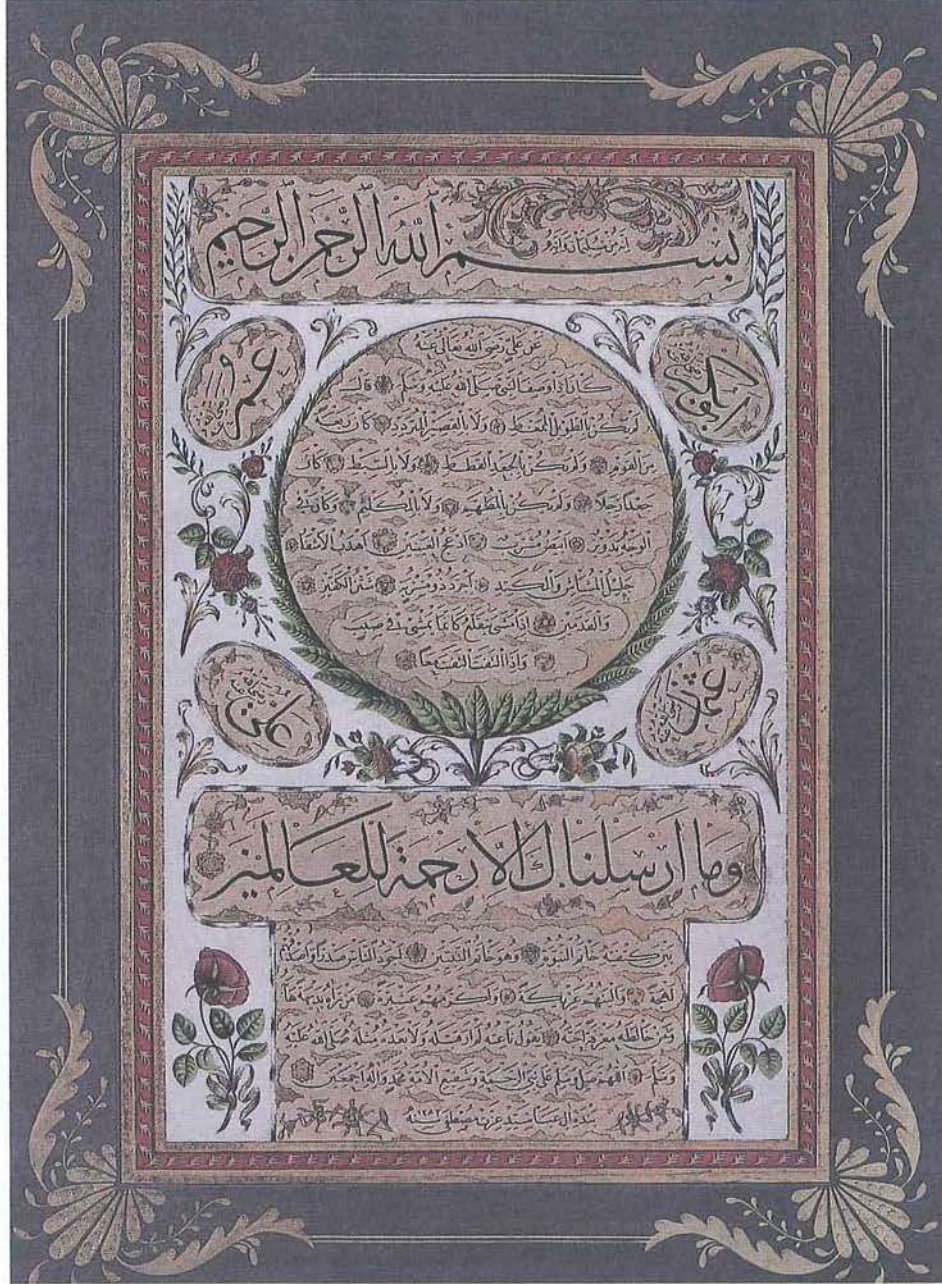 بسم الله الرحمن الرحيم
ابو بكر
رضي الله عنه
عمر
عن علي رضى الله تعالى عنه
كان اذا وصف النبي صلى الله عليه وسلم قال
لم يكن بالطويل الممغط ولا بالقصير المتردد كان ربعة
من القوم ولم يكن بالجعد القطط ولا بالسبط كان
جعدا رجلا ولم يكن بالمطهم ولا بالمكلثم وكان في
الوجه تدوير ابيض مشرب ادعج العينين اهدب الاشفار
جليل المشاش والكتد اجرد ذو مسربة شثن الكفين
والقدمين اذا مشى يتقلع كانما يمشي في صبب
واذا التفت التفت معا
عثمان
علي
وما ارسلناك الا رحمة للعالمين
بين كتفيه خاتم النبوة وهو خاتم النبيين اجود الناس صدرا واصدقهم
لهجة والينهم عريكة واكرمهم عشيرة من رآه بديهة هابه
ومن خالطه معرفة احبه يقول ناعته لم ار قبله ولا بعده مثله صلى الله عليه
وسلم اللهم صل وسلم على نبي الرحمة وشفيع الامة محمد وآله اجمعين
عزت مصطفى سنه